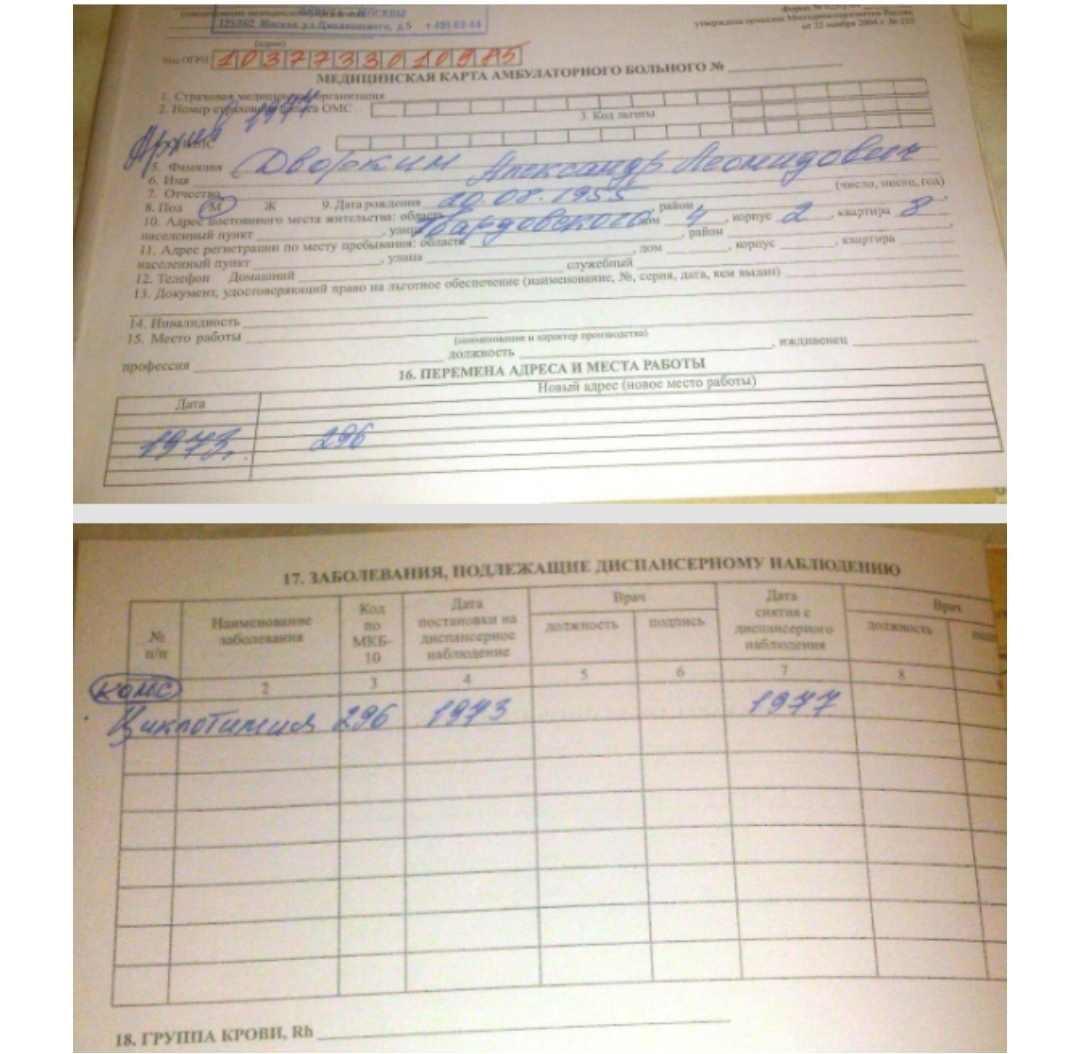 МОСКВЫ
125362 Москва ул Циолковского, д.5 т 491-69-44
утверждена приказом Минздравсоцразвития России
от 22 ноября 2004 г. № 255
(адрес)
Код ОГРН 1037733010985
МЕДИЦИНСКАЯ КАРТА АМБУЛАТОРНОГО БОЛЬНОГО №
1. Страховая медицинская организация
2. Номер страхового полиса ОМС
3. Код льготы
Архив 1977
5. Фамилия Дворкин Александр Леонидович
6. Имя
7. Отчество
(число, месяц, год)
8. Пол М Ж 9. Дата рождения 20.08.1955
10. Адрес постоянного места жительства: область, район
населенный пункт, улица Твардовского дом 4, корпус 2, квартира 8
11. Адрес регистрации по месту пребывания: область, район
населенный пункт, улица, дом, корпус, квартира
12. Телефон Домашний служебный
13. Документ, удостоверяющий право на льготное обеспечение (наименование, №, серия, дата, кем выдан)
14. Инвалидность
15. Место работы
(наименование и характер производства)
профессия должность, иждивенец
16. ПЕРЕМЕНА АДРЕСА И МЕСТА РАБОТЫ
Дата Новый адрес (новое место работы)
1973. 296
17. ЗАБОЛЕВАНИЯ, ПОДЛЕЖАЩИЕ ДИСПАНСЕРНОМУ НАБЛЮДЕНИЮ
№ п/п
Наименование заболевания
Код по МКБ-10
Дата постановки на диспансерное наблюдение
Врач
должность подпись
Дата снятия с диспансерного наблюдения
Врач
должность
2 3 4 5 6 7 8
Циклотимия 296 1973 1977
18. ГРУППА КРОВИ, Rh